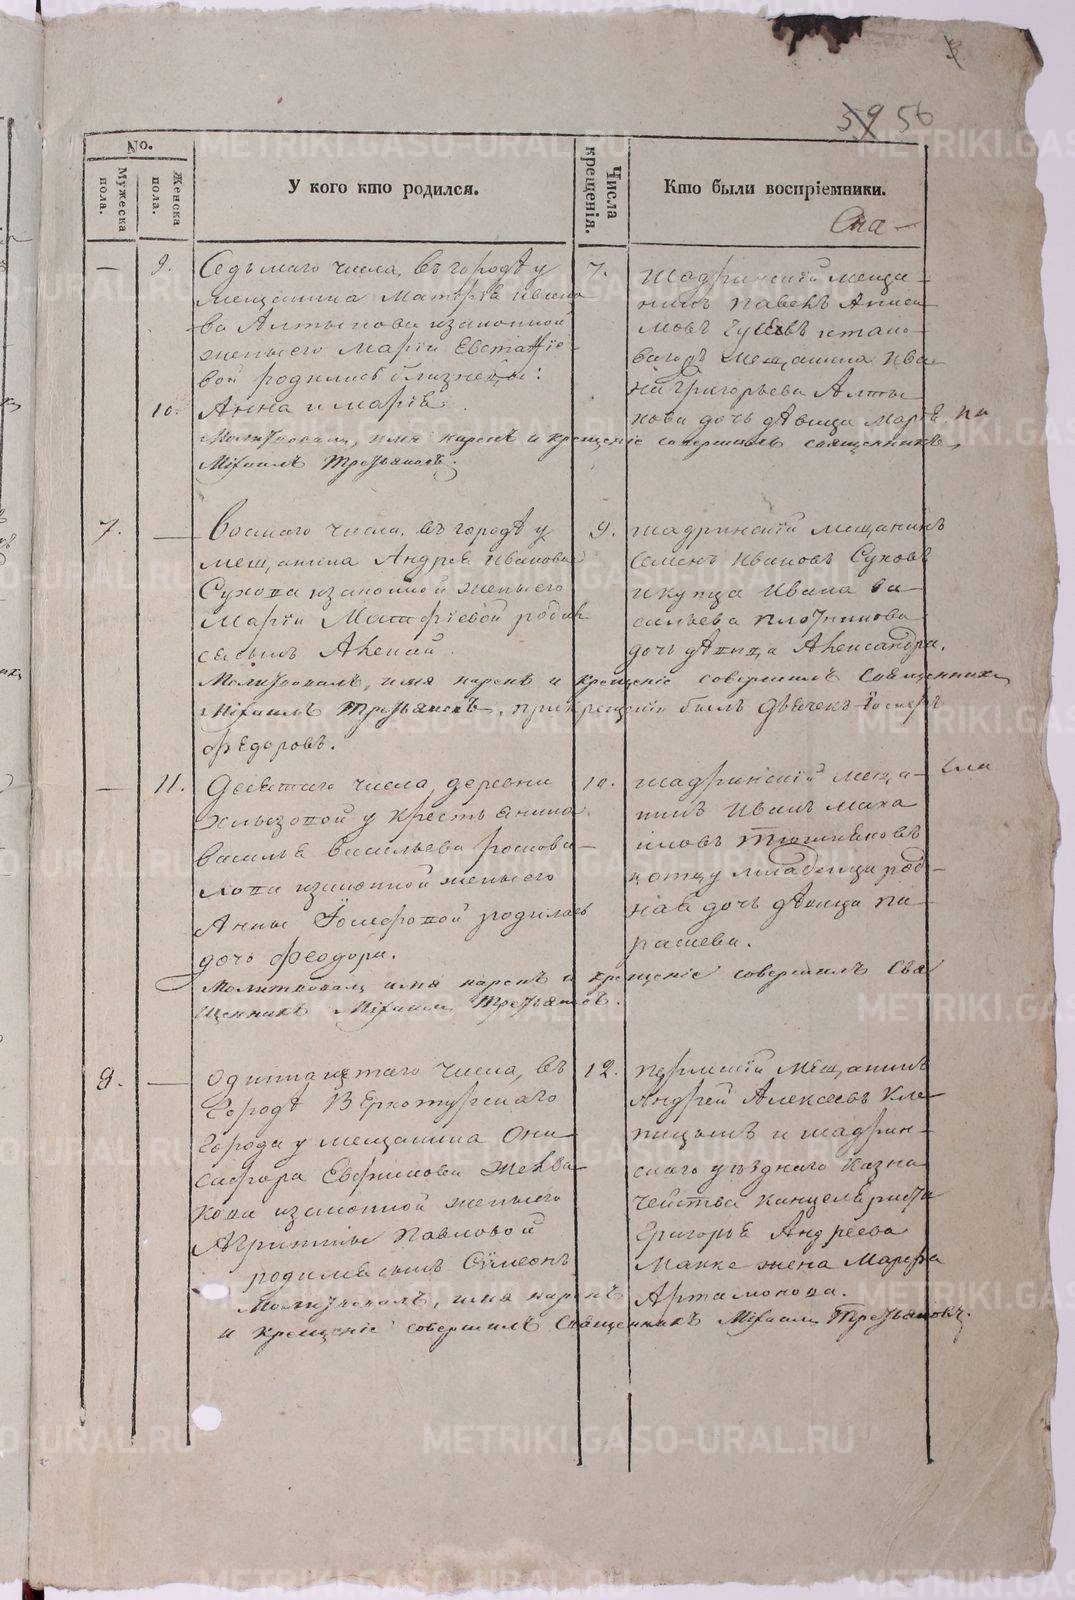 59 56
No.
Мужеска пола.
Женска пола.
У кого кто родился.
Числа крещенія.
Кто были воспріемники.
9.
Седьмаго числа, въ городѣ у
мещанина Матфѣя Ивано
ва Алтынова изаконной
женыего Маріи Евстафіе-
вой родились близнецы:
10.
Анна и Марія.
Молитвовалъ, имя нарекъ и крещеніе совершилъ священникъ
Михаилъ Третьяковъ.
7.
Шадринскій меща-
нинъ Павелъ
мовъ Гусевъ
мещанина Ива
на Григорьева Алты
нова дочь дѣвица Марѳа
7.
Восмаго числа, въ городѣ у
мещанина Андрея Иванова
Сухова изаконной женыего
Маріи Матфіевой родил
сасынъ Алексѣй.
Молитвовалъ, имя нарекъ и крещеніе совершилъ Священникъ
Михаилъ Третьяковъ, прикрещеніи былъ Дьячекъ Іосифъ
Федоровъ.
9.
Шадринскій мещанинъ
Семенъ Ивановъ Суховъ
икупца Ивана Ва
сильева Плотникова
дочь дѣвица Александра.
11.
Девятаго числа, деревни
у крестьянина
Василья Васильева
изаконной женыего
Анны Іосифовой родилась
дочь Феодора.
Молитвовалъ имя нарекъ и крещеніе совершилъ Свя
щенникъ Михаилъ Третьяковъ.
10.
Шадринскій меща-
нинъ Иванъ
иловъ
иотцу младенца род-
ная дочь дѣвица Па
раскева.
8.
Одиннацатаго числа, въ
городѣ Верхотурскаго
города у мещанина Они
сифора Евфимова
изаконной женыего
Агрипины Павловой
родилсясынъ Симеонъ
Молитвовалъ, имя нарекъ
и крещеніе совершилъ Священникъ Михаилъ Третьяковъ.
12.
Пермскій мещанинъ
Андрей Алексѣевъ Кле
пицынъ и Шадрин-
скаго уѣзднаго Казна
чейства канцеляриста
Григорья Андреева
жена Марѳа
Артамонова.
METRIKI.GASO-URAL.RU